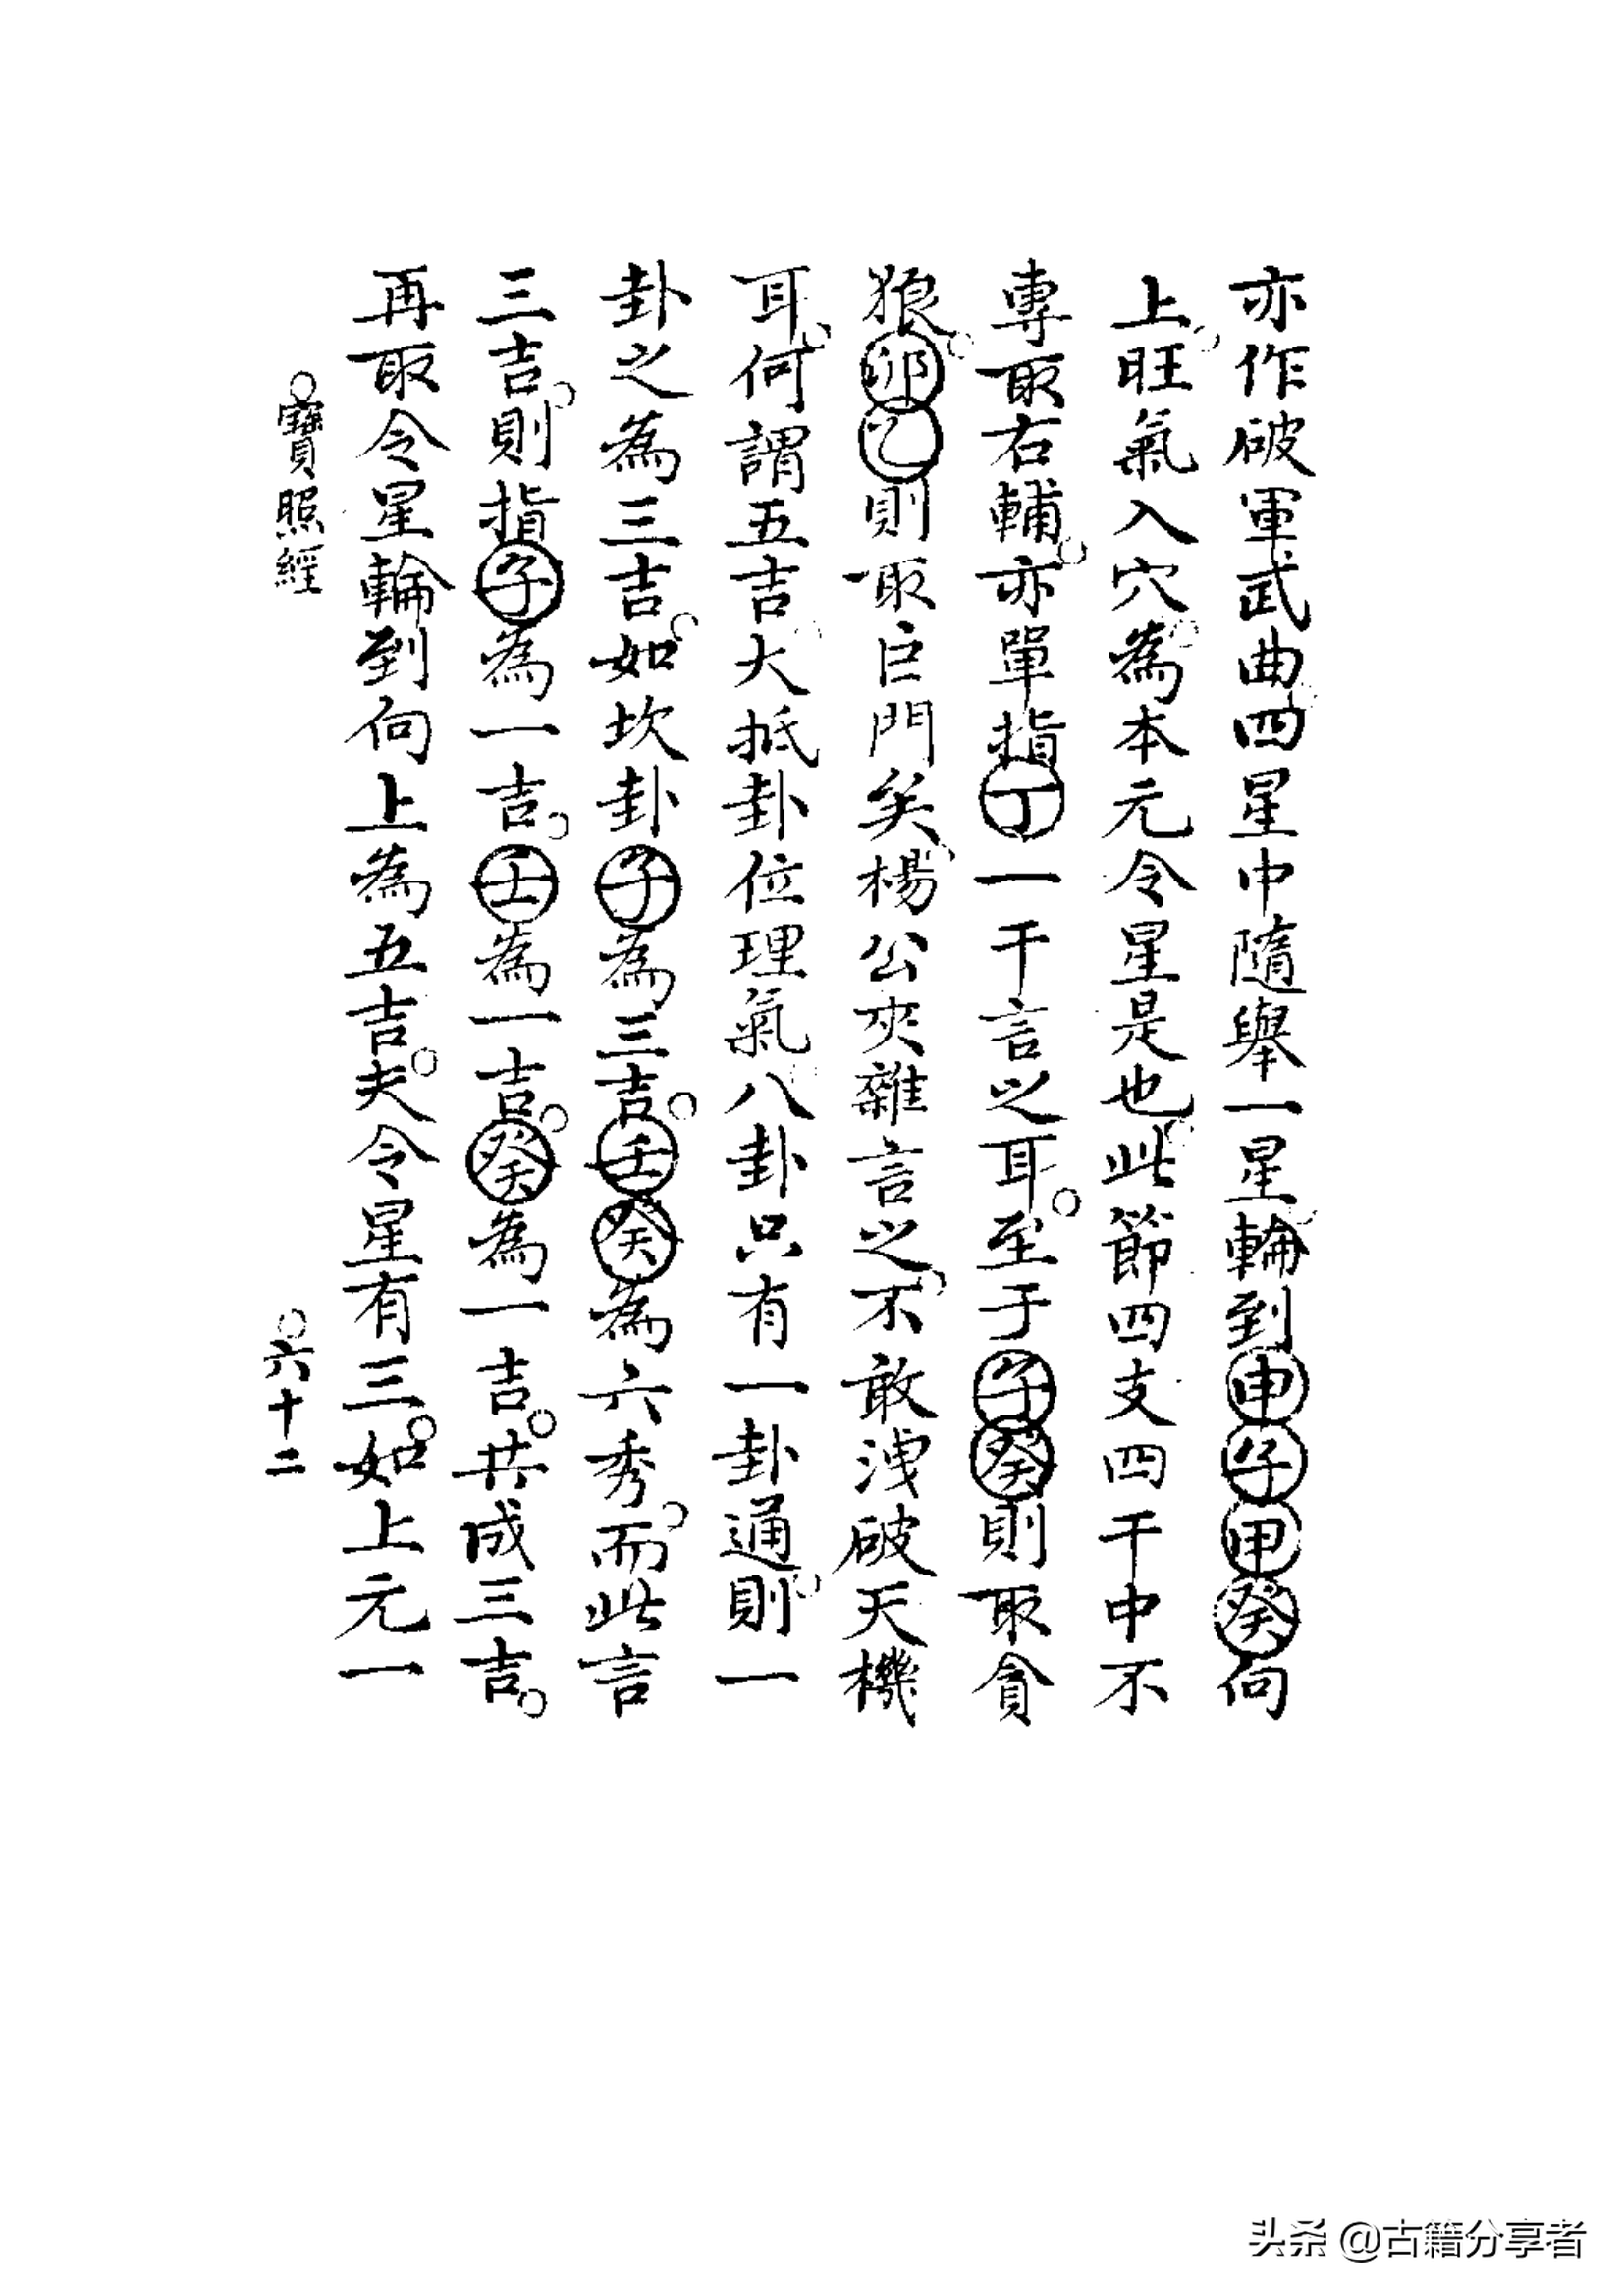 亦作破軍武曲四星中隨舉一星輪到申子甲癸向
上旺氣入穴為本元令星是也此節四支四干中不
專取右輔亦單指丁一干言之耳至于子癸則取貪
狼卯乙則取巨門矣楊公夾雜言之不敢洩破天機
耳何謂五吉大抵卦位理氣八卦只有一卦通則一
卦之為三吉如坎卦子為三吉壬癸為六秀而此言
三吉則指子為一吉壬為一吉癸為一吉共成三吉
再取令星輪到向上為五吉夫令星有三如上元一
寶照經
六十二
头条 @古籍分享者